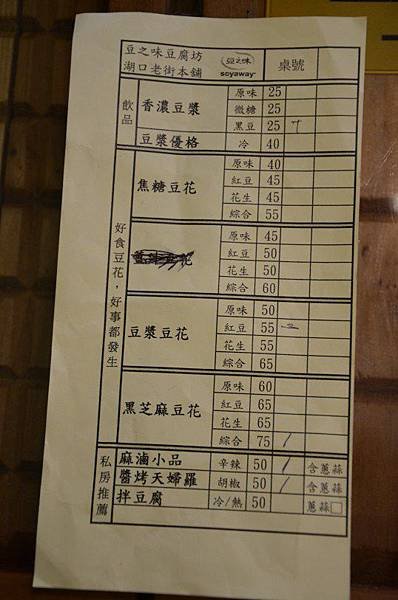 豆之味豆腐坊
湖口老街本舖
豆之味
soyaway
桌號
飲品
香濃豆漿
原味 25
微糖 25
黑豆 25
豆漿優格 冷 40
好食豆花，好事都發生
焦糖豆花
原味 40
紅豆 45
花生 45
綜合 55
花
原味 45
紅豆 50
花生 50
綜合 60
豆漿豆花
原味 50
紅豆 55
花生 55
綜合 65
黑芝麻豆花
原味 60
紅豆 65
花生 65
綜合 75
私房推薦
麻滷小品 辛辣 50 含蔥蒜
醬烤天婦羅 胡椒 50 含蔥蒜
拌豆腐 冷/熱 50 蔥蒜□